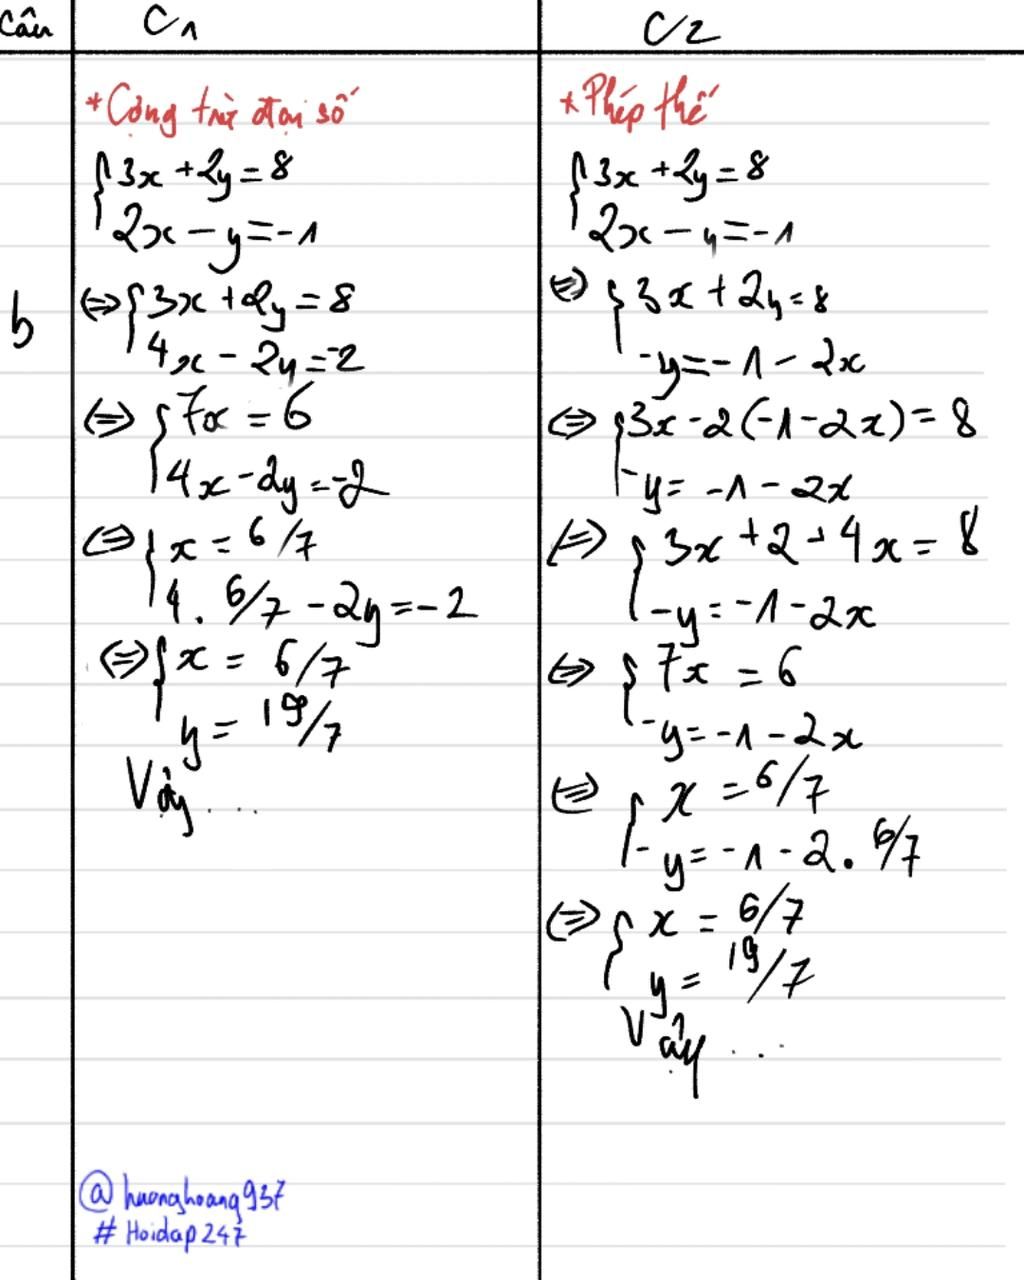 Câu
C1
C2
b
*Cộng trừ đại số
3x + 2y = 8
2x - y = -1
⇔ 3x + 2y = 8
4x - 2y = -2
⇔ 7x = 6
4x - 2y = -2
⇔ x = 6/7
4. 6/7 - 2y = -2
⇔ x = 6/7
y = 19/7
Vậy ...
*Phép thế
3x + 2y = 8
2x - y = -1
⇔ 3x + 2y = 8
-y = -1 - 2x
⇔ 3x - 2(-1 - 2x) = 8
-y = -1 - 2x
⇔ 3x + 2 + 4x = 8
-y = -1 - 2x
⇔ 7x = 6
-y = -1 - 2x
⇔ x = 6/7
-y = -1 - 2. 6/7
⇔ x = 6/7
y = 19/7
Vậy ...
@huonghoang937
# Hoidap247